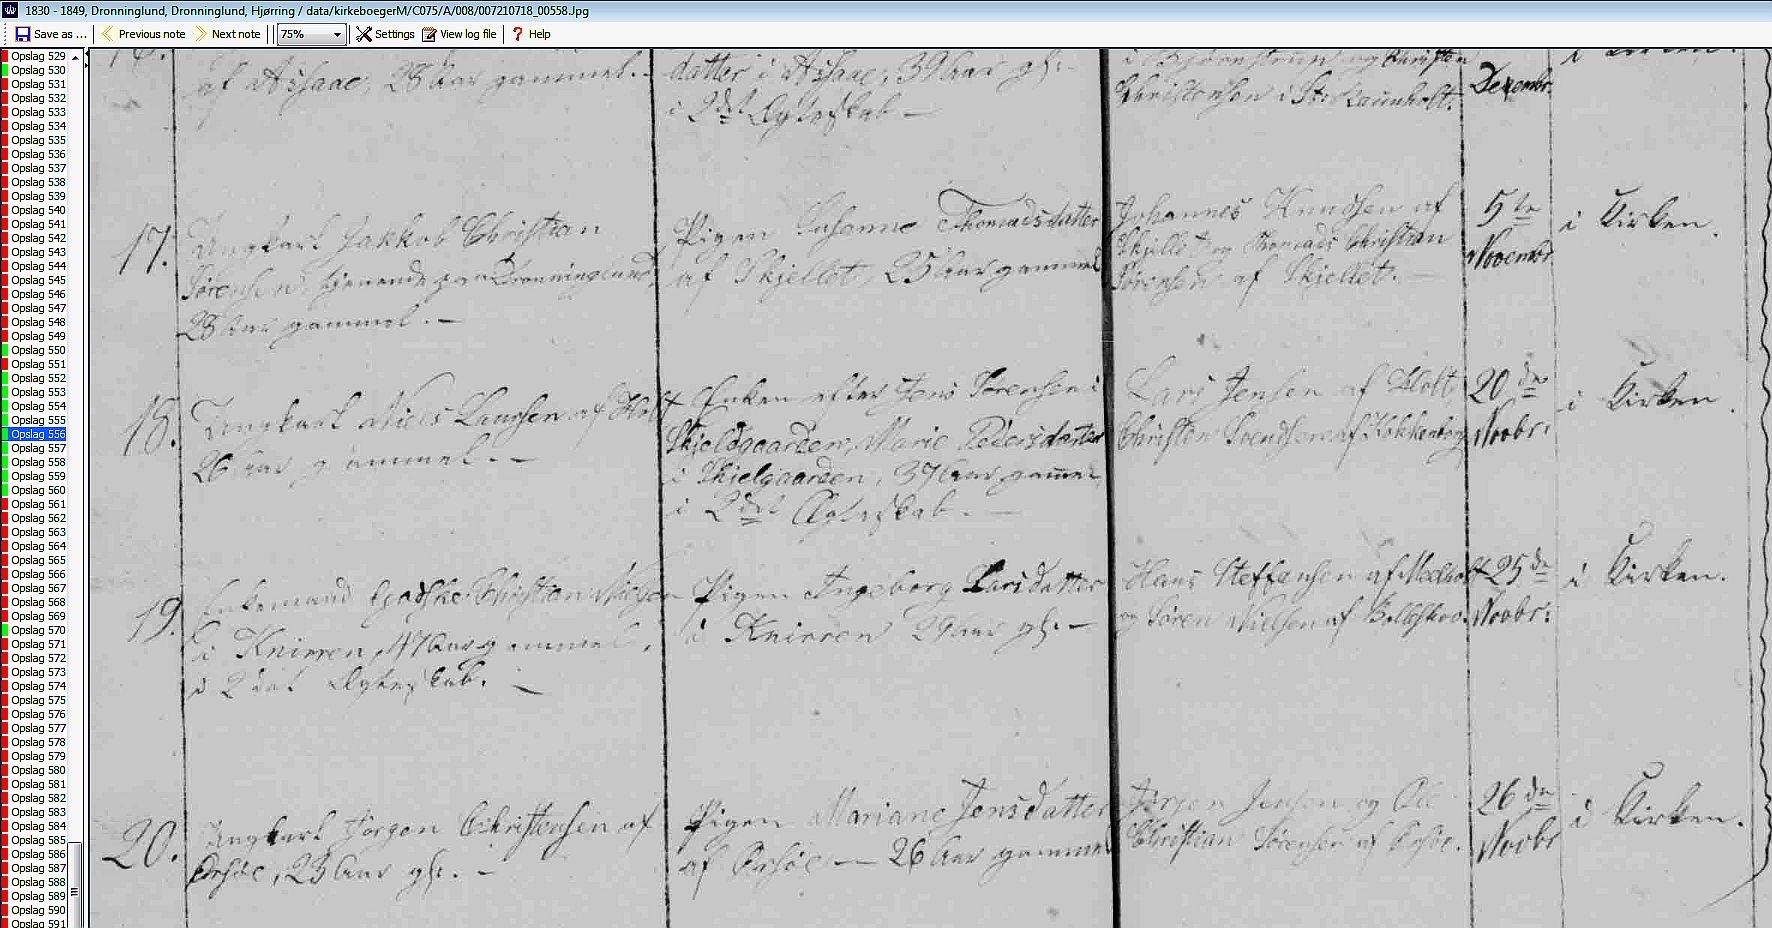 1830 - 1849, Dronninglund, Dronninglund, Hjørring / data/kirkeboegerM/C075/A/008/007210718_00558.Jpg
Save as ... Previous note Next note 75% Settings View log file Help
Opslag 529
Opslag 530
Opslag 531
Opslag 532
Opslag 533
Opslag 534
Opslag 535
Opslag 536
Opslag 537
Opslag 538
Opslag 539
Opslag 540
Opslag 541
Opslag 542
Opslag 543
Opslag 544
Opslag 545
Opslag 546
Opslag 547
Opslag 548
Opslag 549
Opslag 550
Opslag 551
Opslag 552
Opslag 553
Opslag 554
Opslag 555
Opslag 556
Opslag 557
Opslag 558
Opslag 559
Opslag 560
Opslag 561
Opslag 562
Opslag 563
Opslag 564
Opslag 565
Opslag 566
Opslag 567
Opslag 568
Opslag 569
Opslag 570
Opslag 571
Opslag 572
Opslag 573
Opslag 574
Opslag 575
Opslag 576
Opslag 577
Opslag 578
Opslag 579
Opslag 580
Opslag 581
Opslag 582
Opslag 583
Opslag 584
Opslag 585
Opslag 586
Opslag 587
Opslag 588
Opslag 589
Opslag 590
Opslag 591
af Assaae, 28 Aar gammel. -
datter i Assaae, 39 Aar gl: -
i 2det Ægteskab -
og Christen
Christensen i St: Ravnholt.
Decembr.
17.
Ungkarl Jakkob Christian
Sørensen, tjenende paa Dronninglund,
28 Aar gammel. -
Pigen Johanne Thomasdatter
af Skjellet, 25 Aar gammel
Johannes Knudsen af
Skjellet og Thomas Christian
Sørensen af Skjellet. -
5te
Novembr
i Kirken.
18.
Ungkarl Niels Laursen af Holt
26 Aar gammel. -
Enken efter Jens Sørensen i
Skjeldgaarden, Marie Pedersdatter
i Skjelgaarden, 37 Aar gammel
i 2det Ægteskab. -
Lars Jensen af Holt
Christen Svendsen af Kokkenborg
20de
Novbr:
i Kirken.
19.
Enkemand Christian
i Knirren, 47 Aar gammel,
i 2det Ægteskab. -
Pigen Ingeborg Larsdatter
i Knirren 29 Aar gl: -
Hans Steffensen af Melholt
og Søren Nielsen af
25de
Novbr:
i Kirken.
20.
Ungkarl Jørgen Christensen af
Ørsøe, 23 Aar gl:. -
Pigen Mariane Jensdatter
af Ørsøe - 26 Aar gammel
Jørgen Jensen og Ole
Christian Sørensen af Ørsøe.
26de
Novbr
i Kirken.